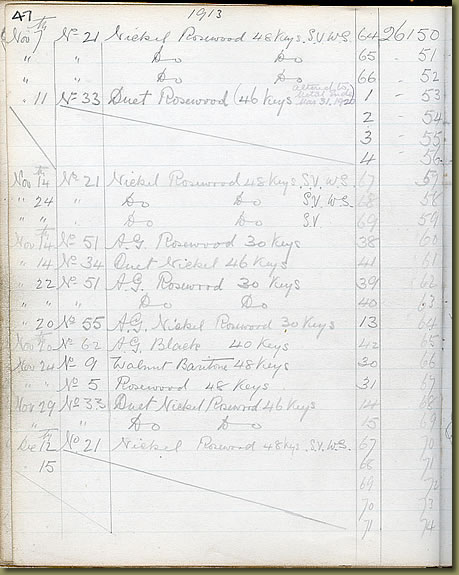 47 1913
Nov 7th No 21 Nickel Rosewood 48 Keys. S.V. W.S. 64 26150
" " Do Do 65 - 51
" " Do Do 66 - 52
" 11 No 33 Duet Rosewood (46 Keys 1 - 53
2 - 54
3 - 55
4 - 56
Nov 14th No 21 Nickel Rosewood 48 Keys. S.V. W.S. 67 57
" 24 " Do Do S.V. W.S. 68 58
" " Do Do S.V. 69 59
Nov 14th No 51 A.G. Rosewood 30 Keys 38 60
" 14 No 34 Duet Nickel 46 Keys 41 61
" 22 No 51 A.G. Rosewood 30 Keys 39 62
" " " Do Do 40 63
" 20 No 55 A.G. Nickel Rosewood 30 Keys 13 64
Nov 20 No 62 A.G. Black 40 Keys 42 65
Nov 24 No 9 Walnut Baritone 48 Keys 30 66
" " No 5 Rosewood 48 Keys 31 67
Nov 29 No 33 Duet Nickel Rosewood 46 Keys 14 68
" " Do Do 15 69
Dec 12th No. 21 Nickel Rosewood 48 Keys. S.V. W.S. 67 70
" 15 68 71
69 72
70 73
71 74